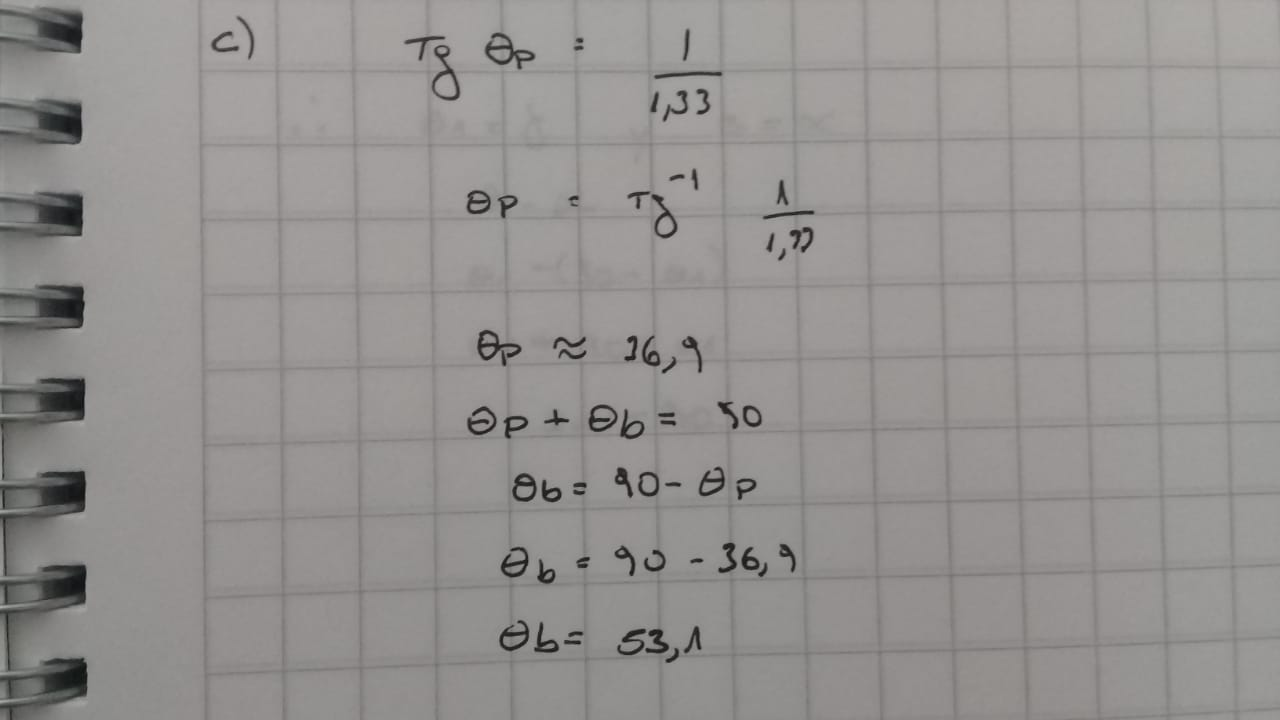 c) Tg θp = 1/1,33
θp = Tg⁻¹ 1/1,33
θp ≈ 36,9
θp + θb = 90
θb = 90 - θp
θb = 90 - 36,9
θb = 53,1